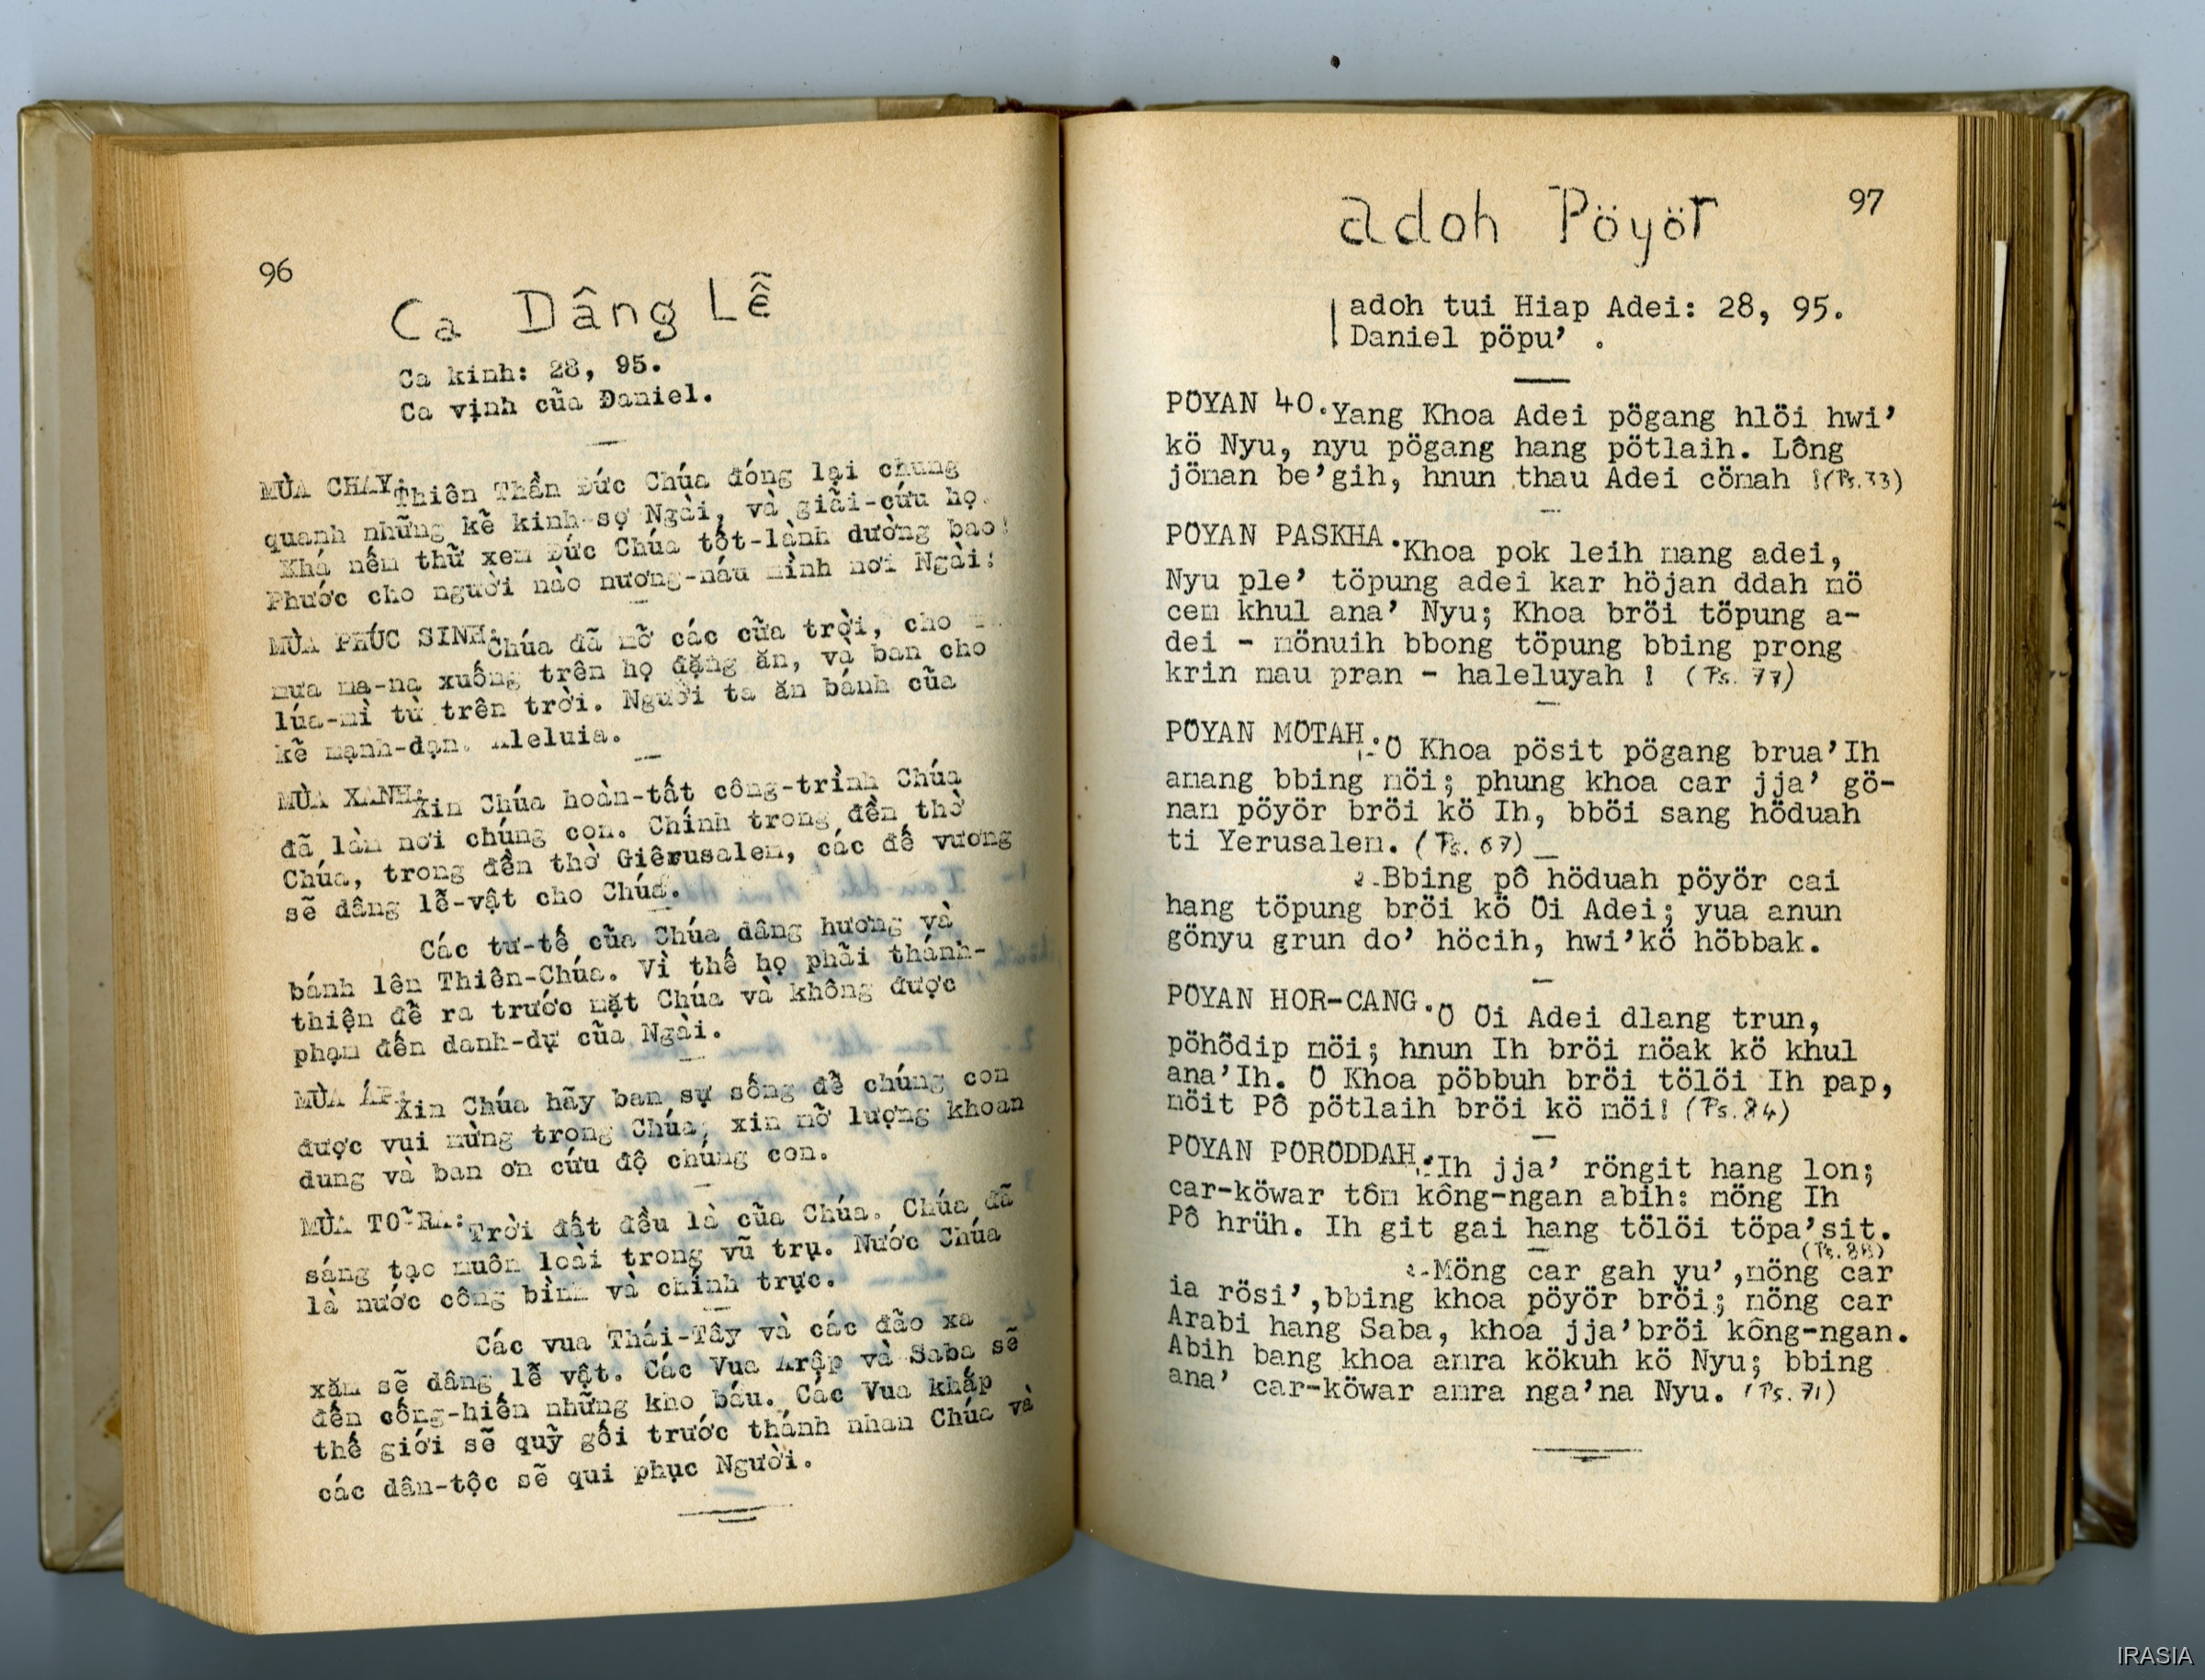 96
Ca Dâng Lễ
Ca kinh: 28, 95.
Ca vịnh của Đaniel.
MÙA CHAY: Thiên Thần Đức Chúa đóng lại chung
quanh những kẽ kinh-sợ Ngài, và giãi-cứu họ.
Khá nếm thử xem Đức Chúa tốt-lành dường bao!
Phước cho người nào nương-náu mình nơi Ngài!
MÙA PHÚC SINH: Chúa đã mỡ các cữa trời, cho
mưa ma-na xuống trên họ đặng ăn, và ban cho
lúa-mì từ trên trời. Người ta ăn bánh cũa
kẽ mạnh-dạn. Aleluia.
MÙA XANH: Xin Chúa hoàn-tất công-trình Chúa
đã làm nơi chúng con. Chính trong đền thờ
Chúa, trong đền thờ Giêrusalem, các đế vương
sẽ dâng lễ-vật cho Chúa.
Các tư-tế cũa Chúa dâng hương và
bánh lên Thiên-Chúa. Vì thế họ phãi thánh-
thiện đễ ra trước mặt Chúa và không được
phạm đến danh-dự cũa Ngài.
MÙA ÁP: Xin Chúa hãy ban sự sống đễ chúng con
được vui mừng trong Chúa; xin mỡ lượng khoan
dung và ban ơn cứu độ chúng con.
MÙA TỎ RA: Trời đất đều là cũa Chúa. Chúa đã
sáng tạo muôn loài trong vũ trụ. Nước Chúa
là nước công bình và chính trực.
Các vua Thái-Tây và các đão xa
xăm sẽ dâng lễ vật. Các Vua Arập và Saba sẽ
đến cống-hiến những kho báu. Các Vua khắp
thế giới sẽ quỳ gối trước thánh nhan Chúa và
các dân-tộc sẽ qui phục Người.
97
adoh Pöyör
adoh tui Hiap Adei: 28, 95.
Daniel pöpu’ .
PÖYAN 40. Yang Khoa Adei pögang hlöi hwi’
kö Nyu, nyu pögang hang pötlaih. Lông
jöman be’gih, hnun thau Adei cömah !(Ps.33)
PÖYAN PASKHA. Khoa pok leih mang adei,
Nyu ple’ töpung adei kar höjan ddah mö
cem khul ana’ Nyu; Khoa bröi töpung a-
dei - mönuih bbong töpung bbing prong
krin mau pran - haleluyah ! (Ps. 77)
PÖYAN MÖTAH. 1- Ö Khoa pösit pögang brua’Ih
amang bbing möi; phung khoa car jja’ gö-
nam pöyör bröi kö Ih, bböi sang höduah
ti Yerusalem. (Ps. 67)
2-Bbing pô höduah pöyör cai
hang töpung bröi kö Öi Adei; yua anun
gönyu grun do’ höcih, hwi’kö höbbak.
PÖYAN HOR-CANG. Ö Öi Adei dlang trun,
pöhôdip möi; hnun Ih bröi möak kö khul
ana’Ih. Ö Khoa pöbbuh bröi tölöi Ih pap,
möit Pô pötlaih bröi kö möi! (Ps.84)
PÖYAN PÖRÖDDAH. 1-Ih jja’ röngit hang lon;
car-köwar tôm kông-ngan abih: möng Ih
Pô hrüh. Ih git gai hang tölöi töpa’sit.
(Ps.88)
2-Möng car gah yu’,möng car
ia rösi’,bbing khoa pöyör bröi; möng car
Arabi hang Saba, khoa jja’bröi kông-ngan.
Abih bang khoa amra kökuh kö Nyu; bbing
ana’ car-köwar amra nga’na Nyu. (Ps.71)
IRASIA